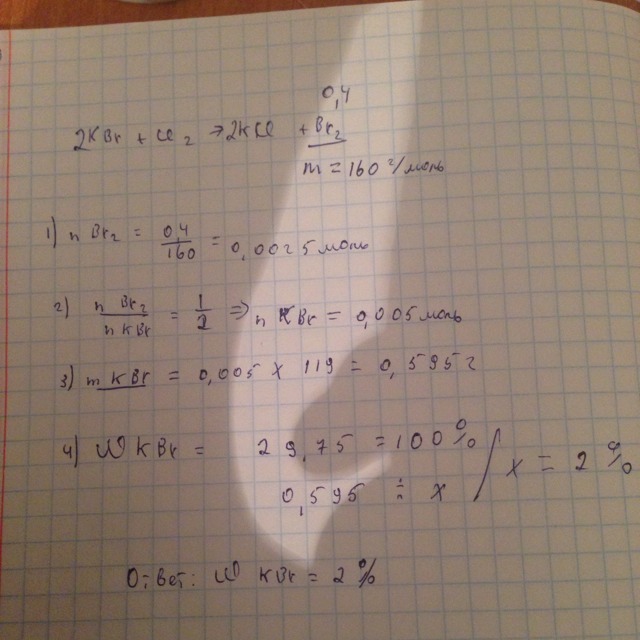 0,4
2KBr + Cl₂ → 2KCl + Br₂
m = 160 г/моль
1) n Br₂ = 0,4/160 = 0,0025 моль
2) n Br₂ / n KBr = 1/2 ⇒ n KBr = 0,005 моль
3) m KBr = 0,005 x 119 = 0,595 г
4) W KBr = 29,75 = 100% / x = 2%
0,595 ÷ x
Ответ: W KBr = 2%